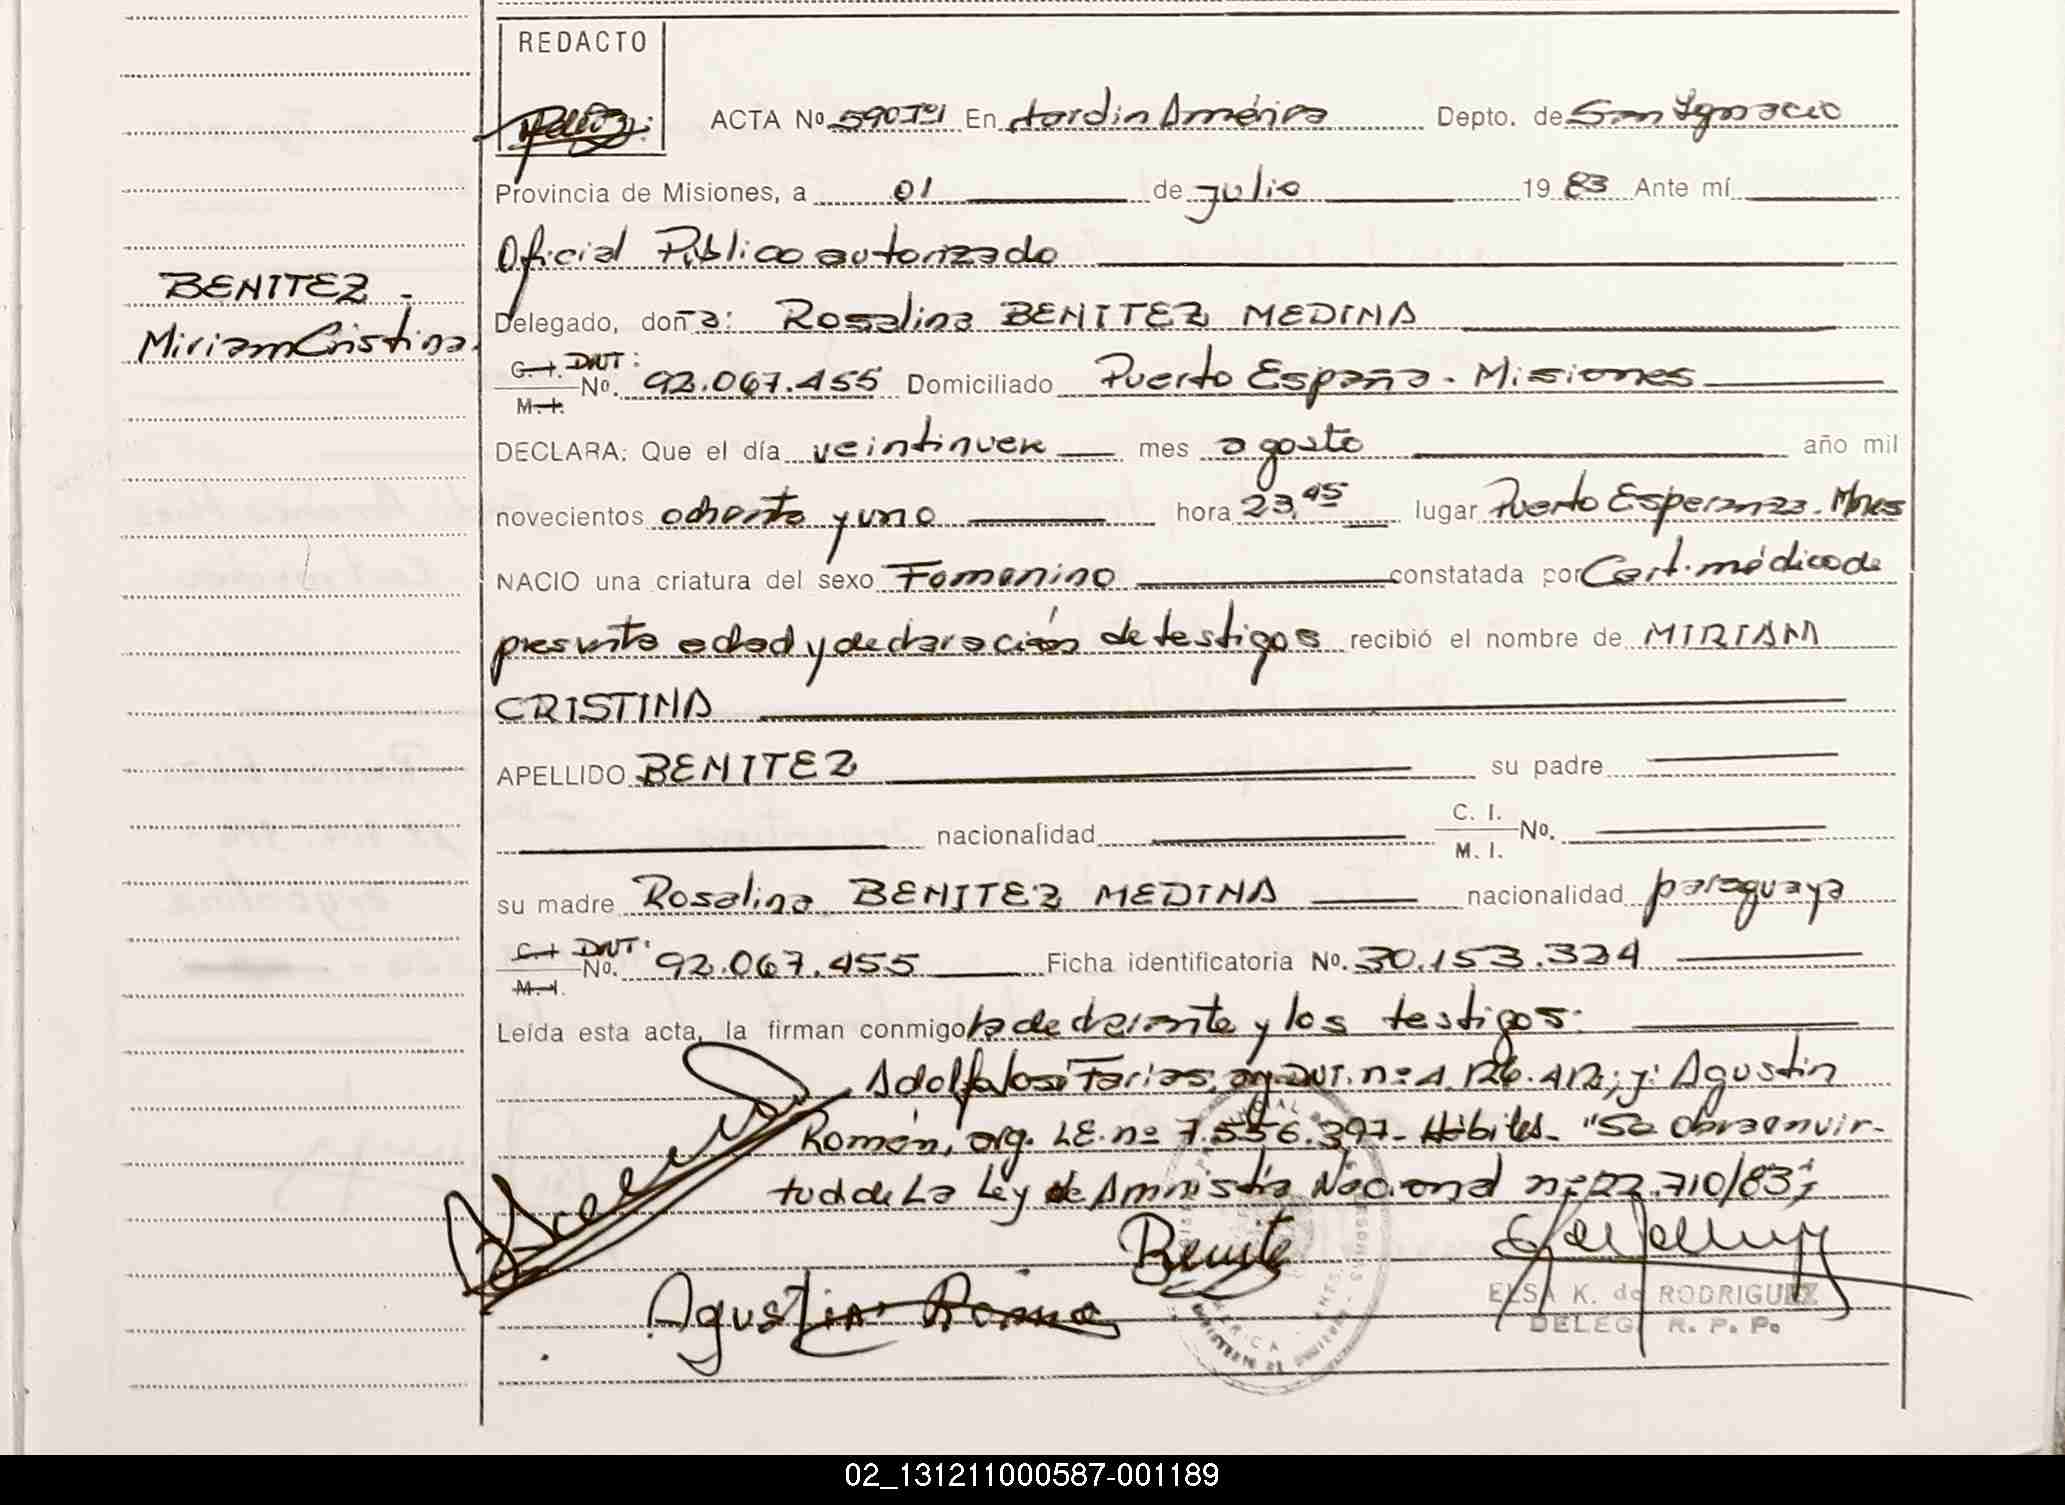 REDACTO
ACTA Nº 590 En Jardín América Depto. de San Ignacio
Provincia de Misiones, a 01 de Julio 1983 Ante mí
Oficial Público autorizado
BENITEZ
Miriam Cristina
Delegado, doña: Rosalina BENITEZ MEDINA
C.I. DNI:
M.I. Nº. 92.067.455 Domiciliado Puerto España. Misiones
DECLARA: Que el día veintinueve mes agosto año mil
novecientos ochenta y uno hora 23,45 lugar Puerto Esperanza. Mnes
NACIO una criatura del sexo Femenino constatada por Cert. médico de
presunta edad y declaración de testigos recibió el nombre de MIRIAM
CRISTINA
APELLIDO BENITEZ su padre
nacionalidad C. I. Nº.
M. I.
su madre Rosalina BENITEZ MEDINA nacionalidad paraguaya
C.I. DNI:
M.I. Nº. 92.067.455 Ficha identificatoria Nº. 30.153.324
Leída esta acta, la firman conmigo la declarante y los testigos:
Adolfo José Farias, arg. DNI. nº y: Agustin
Román, arg. LE. nº 7.556.397- Hábiles. "Se obra en vir-
tud de La Ley de Amnistía Nacional nº 22.710/83;
Benite
Agustin Roman
ELSA K. de RODRIGUEZ
DELEG. R. P. P.
02_131211000587-001189